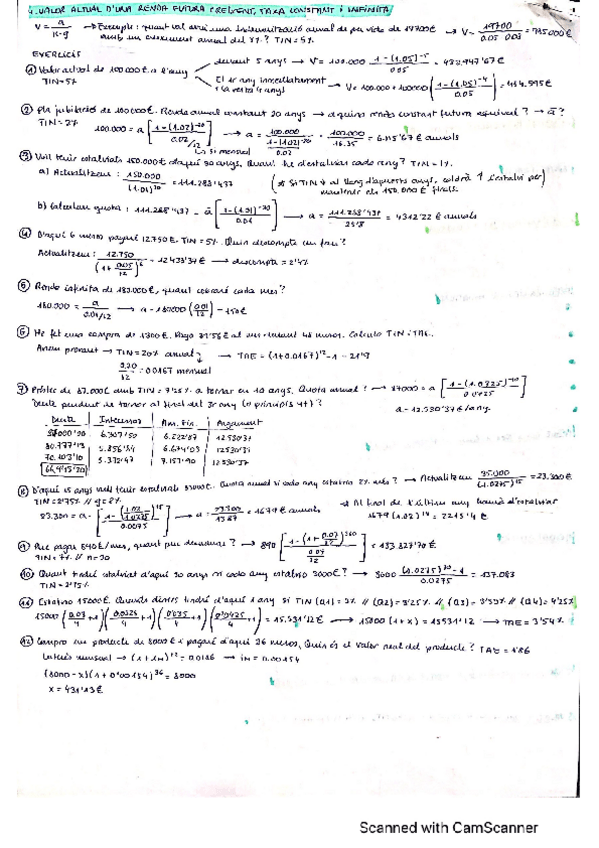 4. VALOR ACTUAL D'UNA RENDA FUTURA CREIXENT, TAXA CONSTANT i INFINITA
V = a / k-g → Exemple: quant val avui una indemnització anual de per vida de 19700€ → V = 19700 / 0.05 0.03 = 985.000€
amb un creixement anual del 3%? TIN = 5%
EXERCICIS
① Valor actual de 100.000€ a l'any durant 5 anys → V = 100.000 1-(1.05)^-5 / 0.05 = 432.947'67€
TIN = 5% El 1r any immediatament i la resta 4 anys → V = 100.000 + 100000 (1-(1.05)^-4 / 0.05) = 454.595€
② Pla jubilació de 100.000€. Renda anual constant 20 anys → a quina renda constant futura equival? → a?
TIN = 2% 100.000 = a [1-(1.02)^-20 / 0.02] → a = 100.000 / [1-(1.02)^-20 / 0.02] = 100.000 / 16.35 = 6.115'67€ anuals
/12 si mensual
③ Vull tenir estalviats 150.000€ d'aquí 30 anys. Quant he d'estalviar cada any? TIN = 1%
a) Actualitzem: 150.000 / (1.01)^30 = 111.288'437 (* Si TIN ↓ al llarg d'aquests anys, caldrà ↑ l'estalvi per mantenir els 150.000€ finals.
b) Calculem quota: 111.288'437 = a [1-(1.01)^-30 / 0.01] → a = 111.288'437 / 25'8 = 4312'22€ anuals
④ D'aquí 6 mesos pagaré 12.750€. TIN = 5%. Quin descompte em fan?
Actualitzem: 12.750 / (1+0.05/12)^6 = 12435'34€ → descompte = 2'4%
⑤ Renda infinita de 180.000€, quant cobraré cada mes?
180.000 = a / 0.01/12 → a = 180000 (0.01/12) = 150€
⑥ He fet una compra de 1300€. Pago 39'56€ al mes durant 48 mesos. Calcula TIN i TAE.
Anem provant → TIN = 20% anual → TAE = (1+0.0167)^12 - 1 = 21'9
0.20/12 = 0.0167 mensual
⑦ Préstec de 87.000€ amb TIN = 7'25% a tornar en 10 anys. Quota anual? → 87000 = a [1-(1.0725)^-10 / 0.0725]
Deute pendent de tornar al final del 3r any (o principis 4t)? a = 12.530'37€/any
Deute | Interessos | Am. Fin. | Pagament
87000'00 | 6.307'50 | 6.222'87 | 12530'37
80.777'13 | 5.856'34 | 6.674'03 | 12530'37
74.103'10 | 5.372'47 | 7.157'90 | 12530'37
66.945'20
⑧ D'aquí 15 anys vull tenir estalviats 35000€. Quota anual si cada any estalvio 2% més? → Actualitzem 35.000 / (1.0275)^15 = 23.300€
TIN = 2'75% // g = 2%
23.300 = a [1-(1.02/1.0275)^15 / 0.0075] → a = 23.300 / 13'87 = 1679€ anuals → Al final de l'últim any hauré d'estalviar
1679 (1.02)^14 = 2215'4€
⑨ Puc pagar 890€/mes, quant puc demanar? → 890 [1-(1+0.07/12)^-360 / 0.07/12] = 133.777'70€
TIN = 7% // n = 30
⑩ Quant tindré estalviat d'aquí 30 anys si cada any estalvio 3000€? → 3000 (1.0275)^30 - 1 / 0.0275 = 137.083
TIN = 2'75%
⑪ Estalvio 15000€. Quants diners tindré d'aquí 1 any si TIN (Q1) = 3% // (Q2) = 3'25% // (Q3) = 3'55% // (Q4) = 4'25%
15000 (0.03/4 + 1)(0.0325/4 + 1)(0'035/4 + 1)(0'0425/4 + 1) = 15.531'12€ → 15000 (1+x) = 15531'12€ → TAE = 3'54%
⑫ Compro un producte de 8000€ i pagaré d'aquí 36 mesos, Quin és el valor real del producte? TAE = 1'86
Interès mensual → (1+im)^12 = 0.0186 → im = 0.00154
(8000-x)(1+0'00154)^36 = 8000
x = 431'13€
Scanned with CamScanner